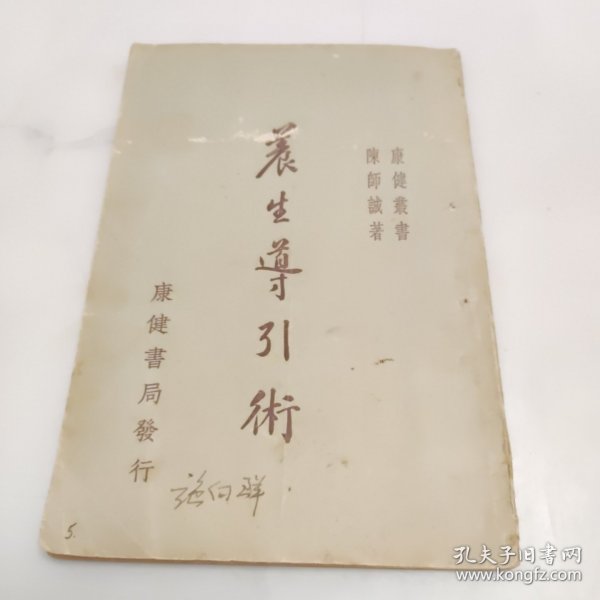 康健叢書
陳師誠著
養生導引術
康健書局發行
5.
孔夫子旧书网
www.kongfz.com